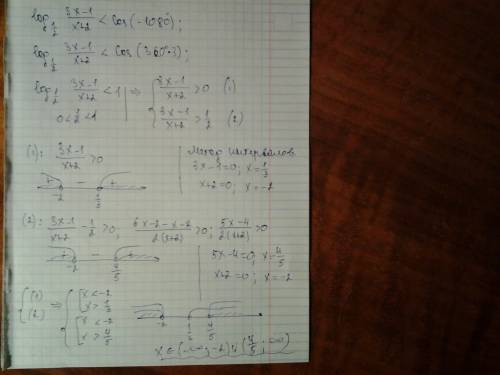 log_{1/2} (3x-1)/(x+2) < cos(-1080);
log_{1/2} (3x-1)/(x+2) < cos(360·3);
log_{1/2} (3x-1)/(x+2) < 1 | ⇒ { (3x-1)/(x+2) > 0 (1)
0 < 1/2 < 1 | { (3x-1)/(x+2) > 1/2 (2)
(1): (3x-1)/(x+2) > 0 | Метод интервалов
3x-1=0; x=1/3
x+2=0; x=-2
+ - +
-2 1/3
(2): (3x-1)/(x+2) - 1/2 > 0; (6x-2-x-2)/(2(x+2)) > 0; (5x-4)/(2(x+2)) > 0
+ - +
-2 4/5
5x-4=0; x=4/5
x+2=0; x=-2
{ (1) (2) ⇒ { [ x<-2 x>1/3
[ x<-2 x>4/5
-2 1/3 4/5
x∈(-∞; -2)∪(4/5; ∞)